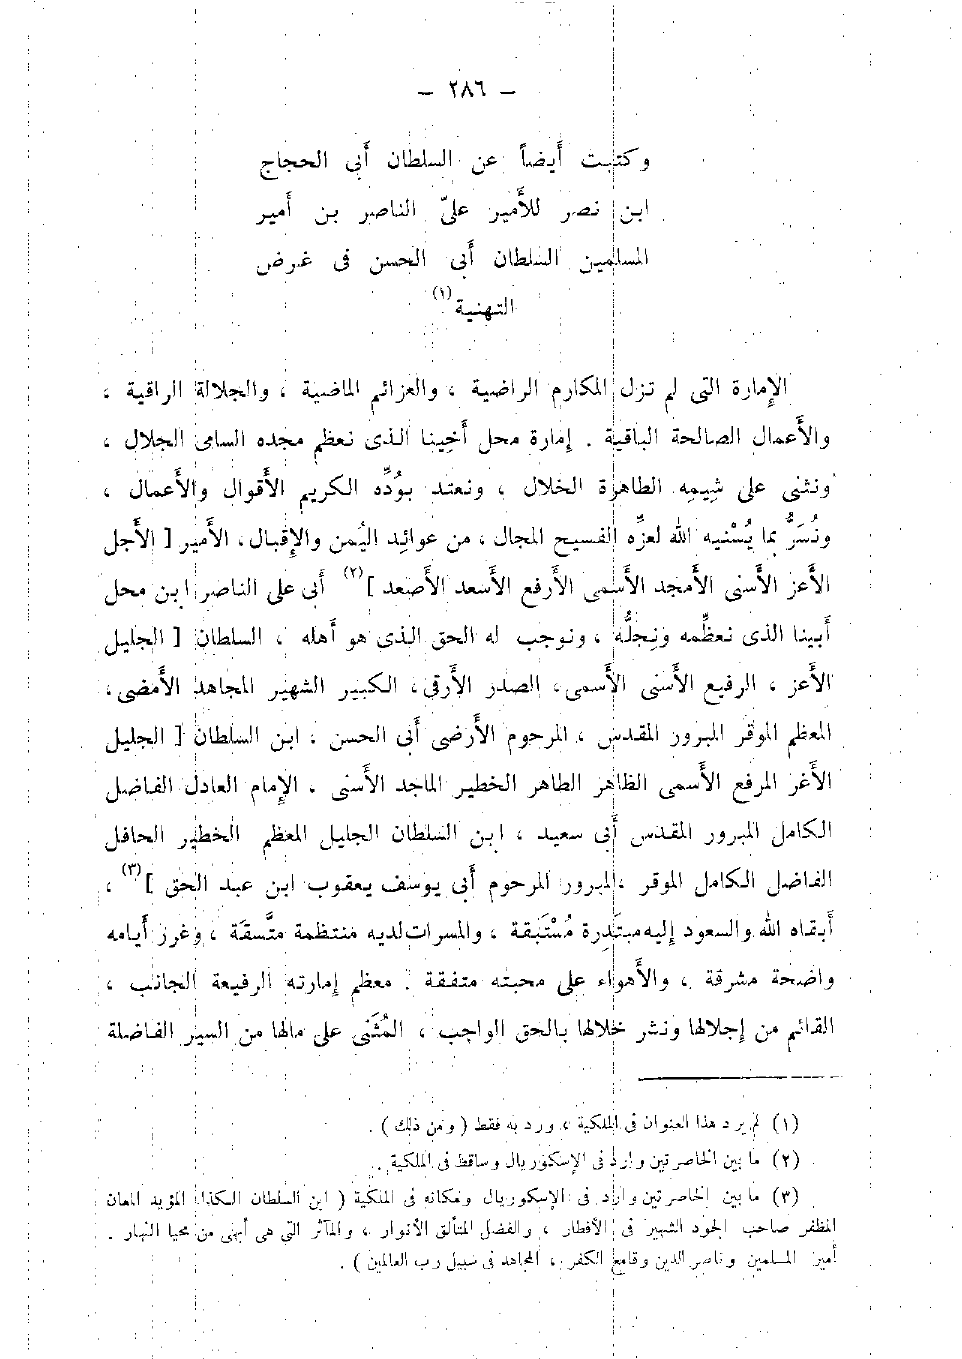 — ٢٨٦ —
وكتبت أيضاً عن السلطان أبى الحجاج
ابن نصر للأمير علىّ الناصر بن أمير
المسلمين السلطان أبى الحسن فى غرض
التهنية (١)
الإمارة التى لم تزل المكارم الراضية ، والعزائم الماضية ، والجلالة الراقية ،
والأعمال الصالحة الباقية . إمارة محل أخينا الذى نعظم مجده السامى الجلال ،
ونثنى على شِيمِه الطاهرة الخلال ، ونعتد بوُدِّه الكريم الأقوال والأعمال ،
ونُسَرُّ بما يُسْنيه الله لعزِّه الفسيح المجال ، من عوائد اليُمن والإقبال ، الأمير [ الأجل
الأعز الأسنى الأمجد الأسمى الأرفع الأسعد الأصعد ] (٢) أبى على الناصر ابن محل
أبينا الذى نعظِّمه ونِجلُّه ، ونوجب له الحق الذى هو أهله ، السلطان [ الجليل
الأعز ، الرفيع الأسنى الأسمى ، الصدر الأرقى ، الكبير الشهير المجاهد الأمضى ،
المعظم الموقر المبرور المقدس ، المرحوم الأرضى أبى الحسن ، ابن السلطان [ الجليل
الأغر المرفع الأسمى الظاهر الطاهر الخطير الماجد الأسنى ، الإمام العادل الفاضل
الكامل المبرور المقدس أبى سعيد ، ابن السلطان الجليل المعظم الخطير الحافل
الفاضل الكامل الموقر ، المبرور المرحوم أبى يوسف يعقوب ابن عبد الحق ] (٣) ،
أبقاه الله والسعود إليه مبتَدِرة مُسْتَبقة ، والمسرات لديه منتظمة متَّسقَة ، وغرر أيامه
واضحة مشرقة ، والأهواء على محبته متفقة . معظم إمارته الرفيعة الجانب ،
القائم من إجلالها ونشر خلالها بالحق الواجب ، المُثَنى على مالها من السير الفاضلة
(١) لم يرد هذا العنوان فى الملكية ، ورد به فقط ( ومن ذلك ) .
(٢) ما بين الخاصرتين وارد فى الإسكوريال وساقط فى الملكية .
(٣) ما بين الخاصرتين وارد فى الإسكوريال ومكانه فى الملكية ( ابن السلطان الكذا المؤيد المعان
المظفر صاحب الجود الشهير فى الأقطار ، والفضل المتألق الأنوار ، والمآثر التى هى أبهى من محيا النهار .
أمير المسلمين وناصر الدين وقامع الكفر ، المجاهد فى سبيل رب العالمين ) .